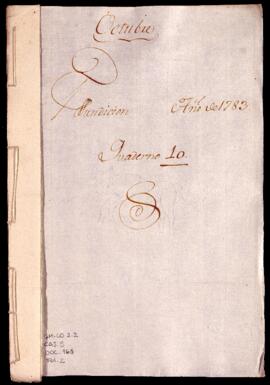 Octubre
Fundicion Año de 1783
Quaderno 10.
CAJ. 5
DOC. 165